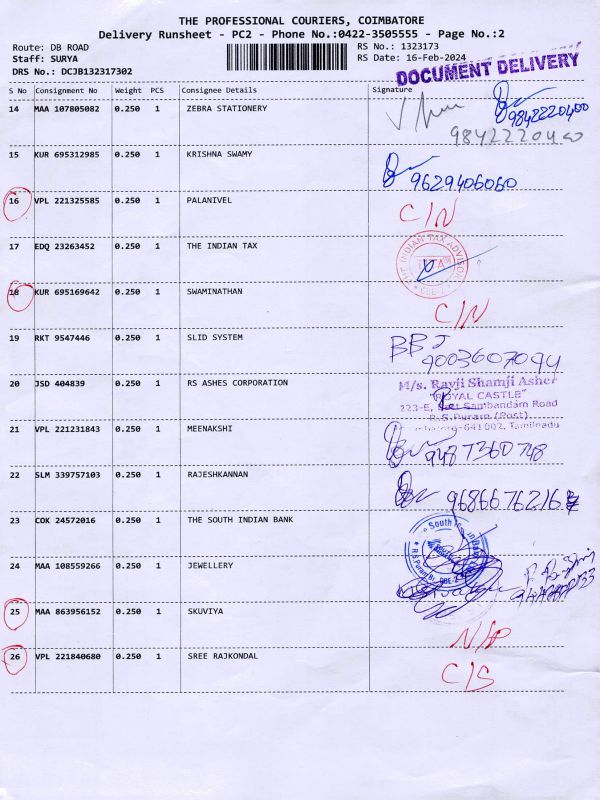 THE PROFESSIONAL COURIERS, COIMBATORE
Delivery Runsheet - PC2 - Phone No.:0422-3505555 - Page No.:2
Route: DB ROAD
RS No.: 1323173
Staff: SURYA
RS Date: 16-Feb-2024
DRS No.: DCJB132317302
DOCUMENT DELIVERY
S No Consignment No Weight PCS Consignee Details Signature
14 MAA 107805082 0.250 1 ZEBRA STATIONERY
9842220400
9842220400
15 KUR 695312985 0.250 1 KRISHNA SWAMY
9629406060
16 VPL 221325585 0.250 1 PALANIVEL C/N
17 EDQ 23263452 0.250 1 THE INDIAN TAX
THE INDIAN TAX ADVISOR
18 KUR 695169642 0.250 1 SWAMINATHAN C/N
19 RKT 9547446 0.250 1 SLID SYSTEM BBJ
9003607094
20 JSD 404839 0.250 1 RS ASHES CORPORATION
M/s. Ravji Shamji Asher
"ROYAL CASTLE"
223-E, Sambandam Road
R.S.Puram (Post)
641002, Tamilnadu
21 VPL 221231843 0.250 1 MEENAKSHI
9487360748
22 SLM 339757103 0.250 1 RAJESHKANNAN
9686676216
23 COK 24572016 0.250 1 THE SOUTH INDIAN BANK
24 MAA 108559266 0.250 1 JEWELLERY
25 MAA 863956152 0.250 1 SKUVIYA N/P
26 VPL 221840680 0.250 1 SREE RAJKONDAL C/S